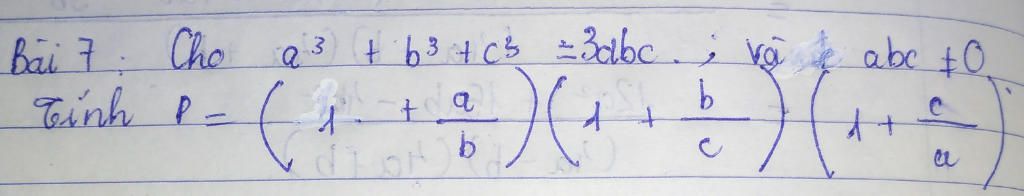 Bài 7: Cho a³ + b³ + c³ = 3abc.; và abc ≠ 0.
Tính P = (1 + a/b)(1 + b/c)(1 + c/a)